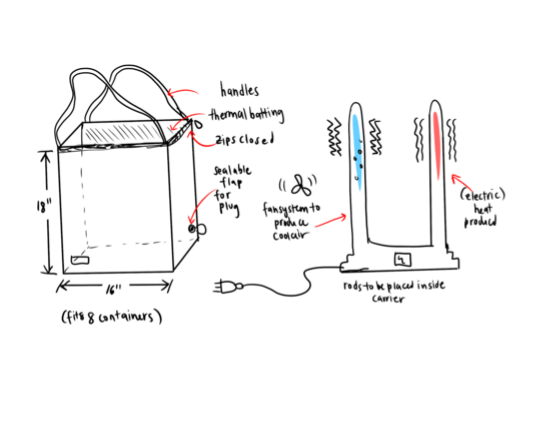 handles
thermal batting
zips closed
sealable
flap
for
plug
18"
16"
(fits 8 containers)
fan system to
produce
cool air
(electric)
heat
produced
rods to be placed inside
carrier